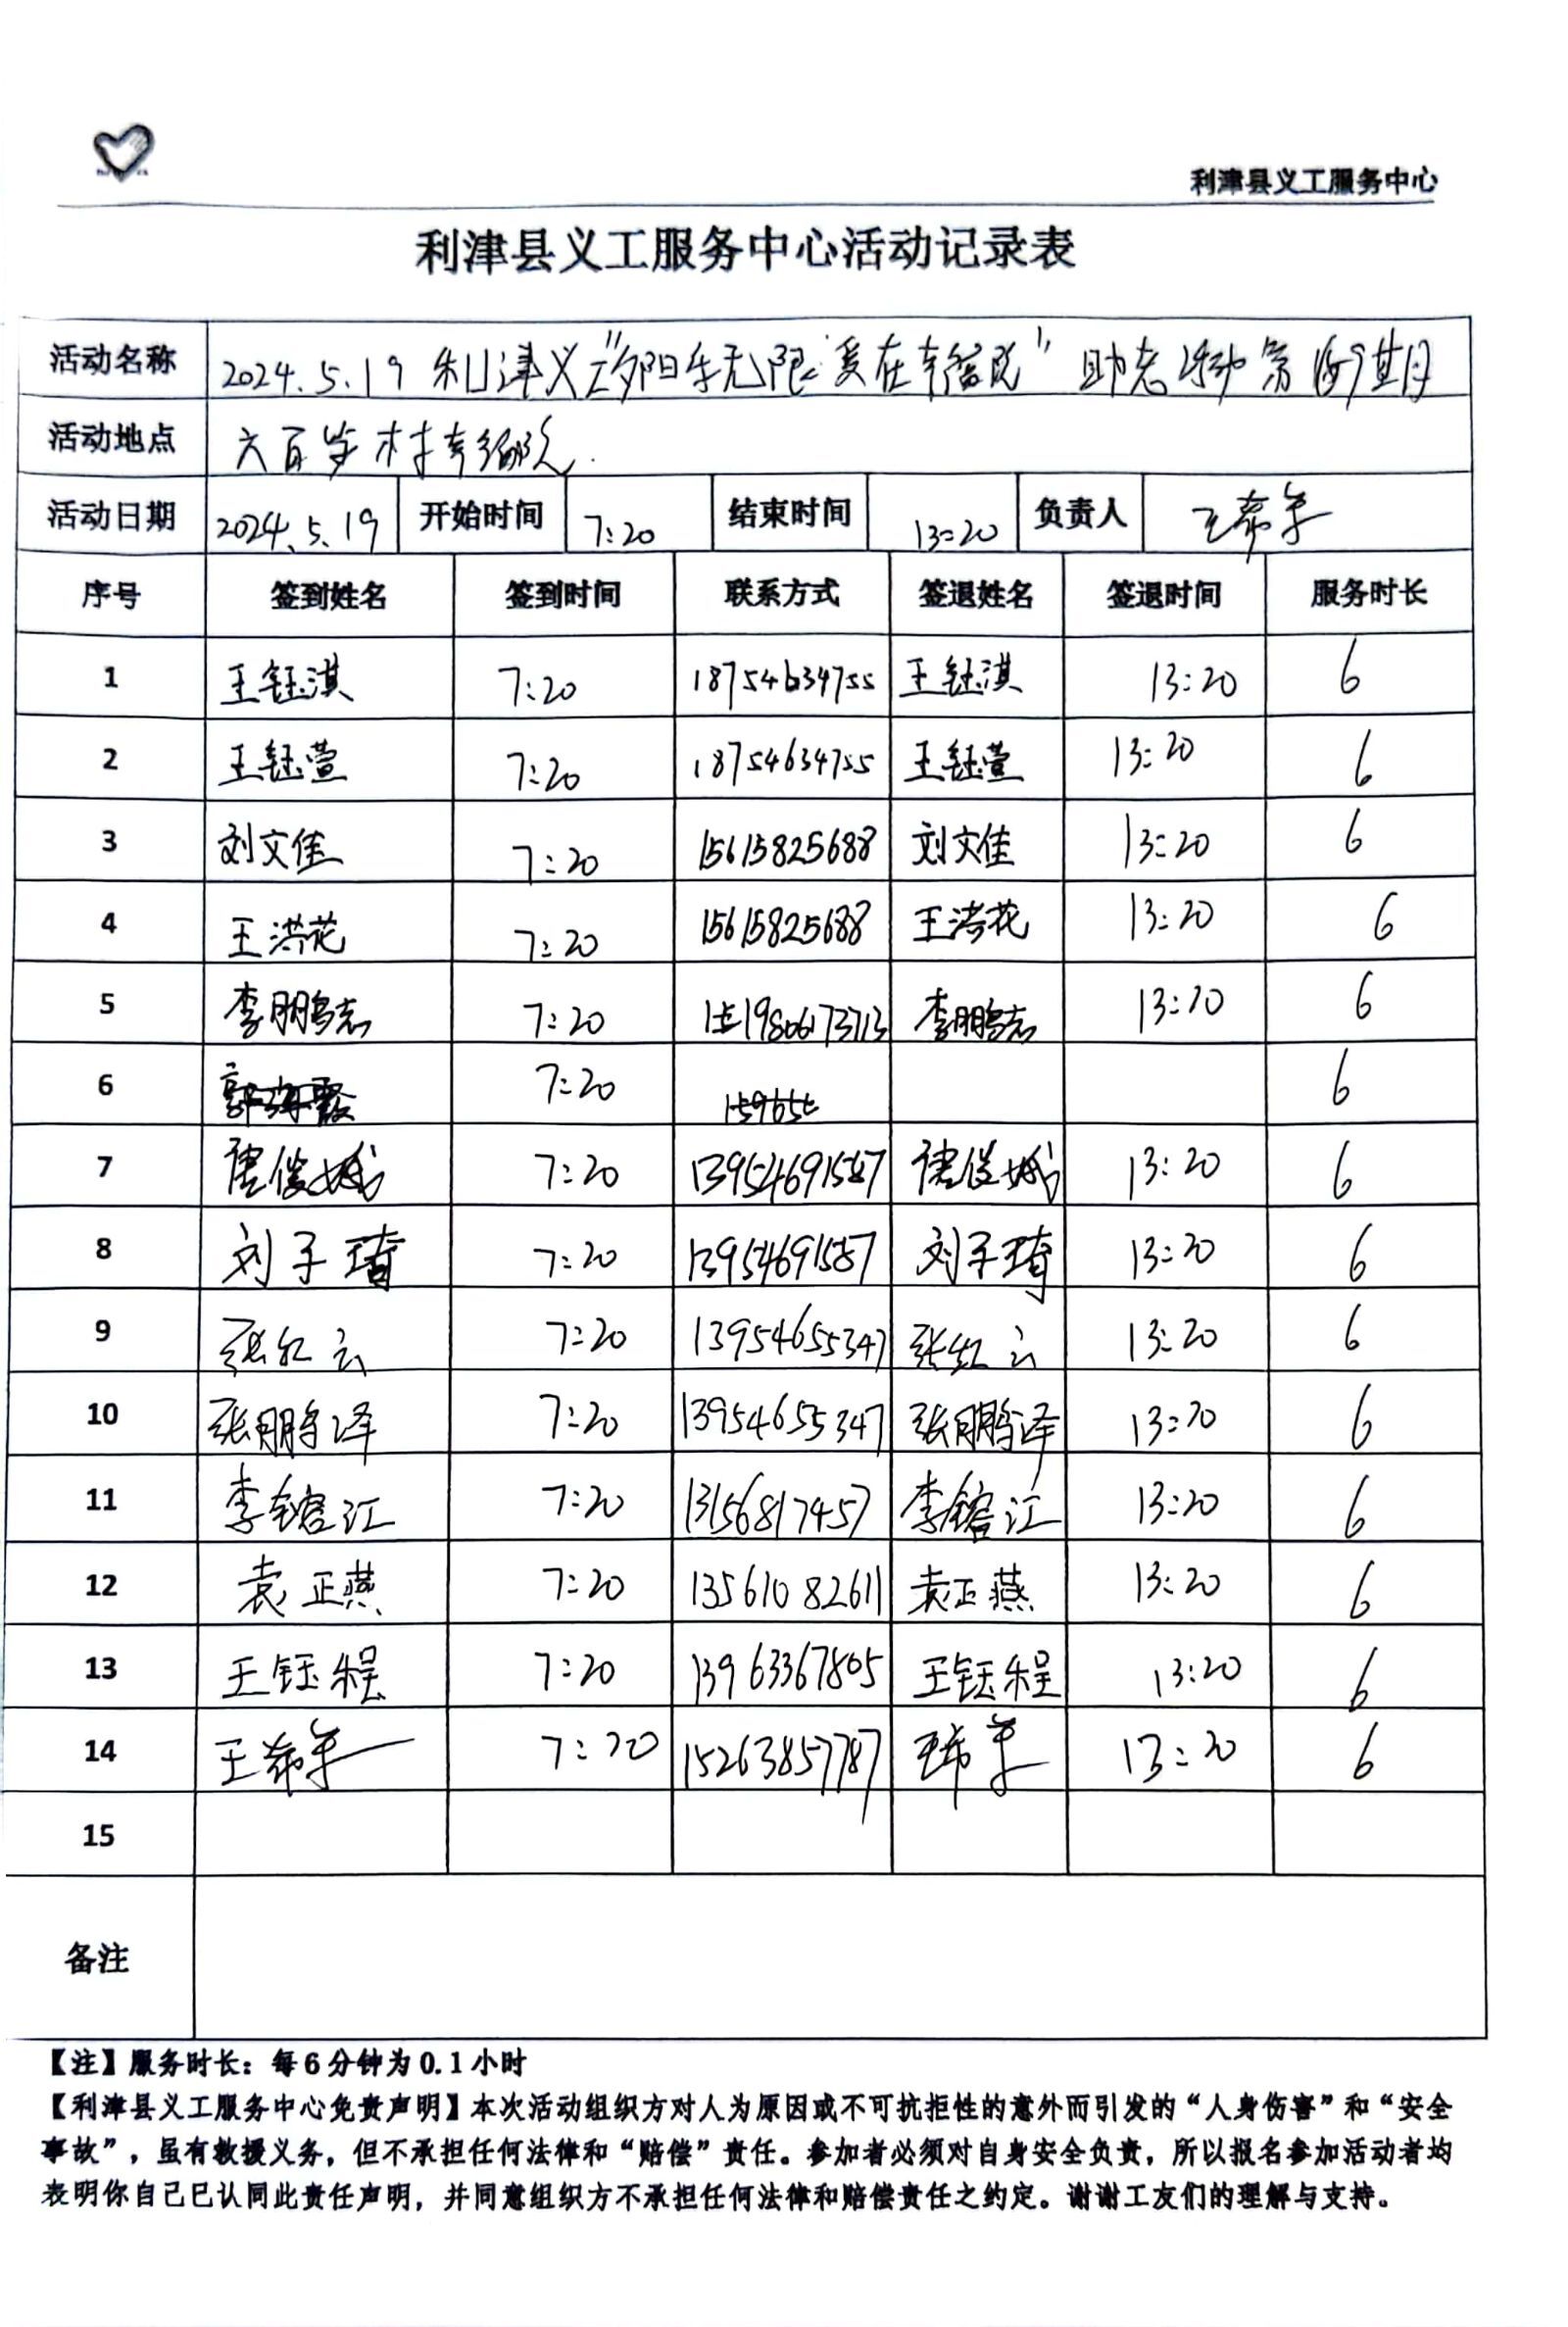 利津县义工服务中心
利津县义工服务中心活动记录表
活动名称 2024.5.19 利津义工"夕阳乐无限 爱在幸福院" 助老活动 第
活动地点 六百岁村幸福院.
活动日期 2024.5.19 开始时间 7:20 结束时间 13:20 负责人 王希军
序号 签到姓名 签到时间 联系方式 签退姓名 签退时间 服务时长
1 王钰淇 7:20 18754634755 王钰淇 13:20 6
2 王钰萱 7:20 18754634755 王钰萱 13:20 6
3 刘文佳 7:20 15615825688 刘文佳 13:20 6
4 王洪花 7:20 15615825688 王洪花 13:20 6
5 李鹏志 7:20 19806173713 李鹏志 13:20 6
6 7:20 6
7 唐俊娥 7:20 13954691587 唐俊娥 13:20 6
8 刘子琦 7:20 13954691587 刘子琦 13:20 6
9 张红云 7:20 13954655347 张红云 13:20 6
10 张鹏泽 7:20 13954655347 张鹏泽 13:20 6
11 李镕江 7:20 13156817457 李镕江 13:20 6
12 袁正燕 7:20 13561082611 袁正燕 13:20 6
13 王钰程 7:20 13963367805 王钰程 13:20 6
14 王希军 7:20 15263857787 王希军 13:20 6
15
备注
【注】服务时长：每6分钟为0.1小时
【利津县义工服务中心免责声明】本次活动组织方对人为原因或不可抗拒性的意外而引发的“人身伤害”和“安全
事故”，虽有救援义务，但不承担任何法律和“赔偿”责任。参加者必须对自身安全负责，所以报名参加活动者均
表明你自己已认同此责任声明，并同意组织方不承担任何法律和赔偿责任之约定。谢谢工友们的理解与支持。